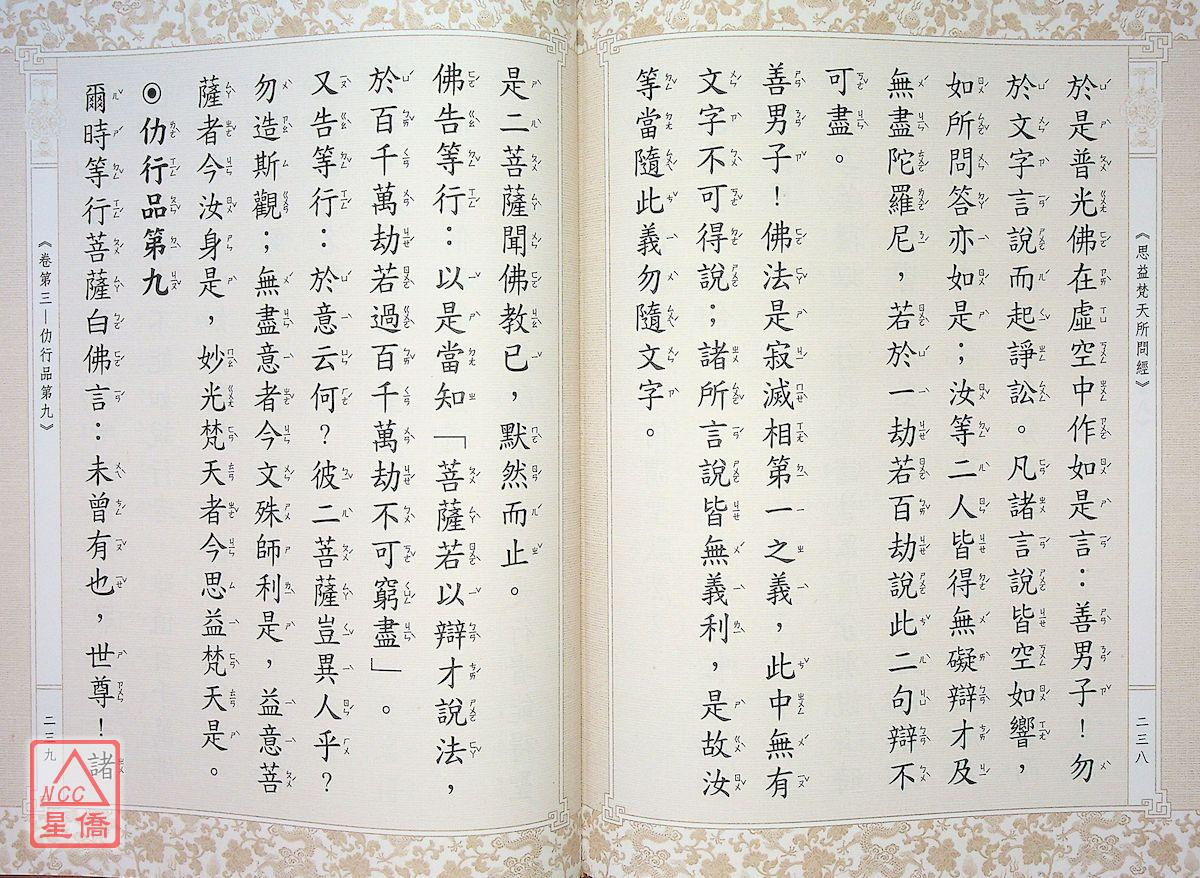 《思益梵天所問經》
二三八
於是普光佛在虛空中作如是言：善男子！勿
於文字言說而起諍訟。凡諸言說皆空如響，
如所問答亦如是；汝等二人皆得無礙辯才及
無盡陀羅尼，若於一劫若百劫說此二句辯不
可盡。
善男子！佛法是寂滅相第一之義，此中無有
文字不可得說；諸所言說皆無義利，是故汝
等當隨此義勿隨文字。
是二菩薩聞佛教已，默然而止。
佛告等行：以是當知「菩薩若以辯才說法，
於百千萬劫若過百千萬劫不可窮盡」。
又告等行：於意云何？彼二菩薩豈異人乎？
勿造斯觀；無盡意者今文殊師利是，益意菩
薩者今汝身是，妙光梵天者今思益梵天是。
◉仂行品第九
爾時等行菩薩白佛言：未曾有也，世尊！諸
《卷第三—仂行品第九》
二三九
NCC
星僑